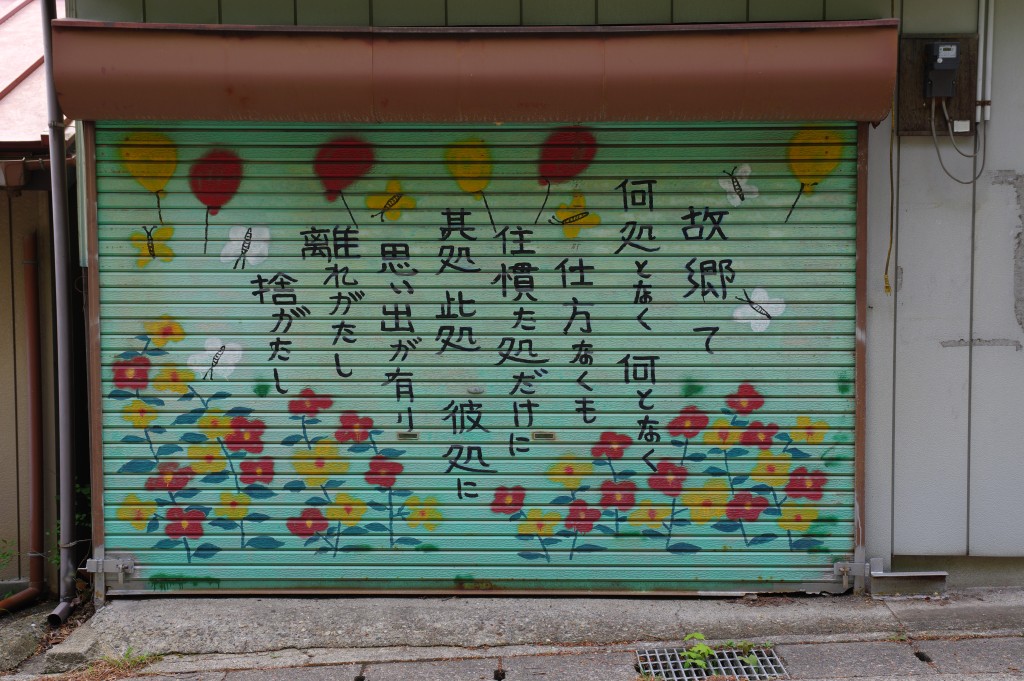 故郷て
何処となく 何となく
仕方なくも
住慣た処だけに
其処 此処 彼処に
思い出が有り
離れがたし
捨がたし